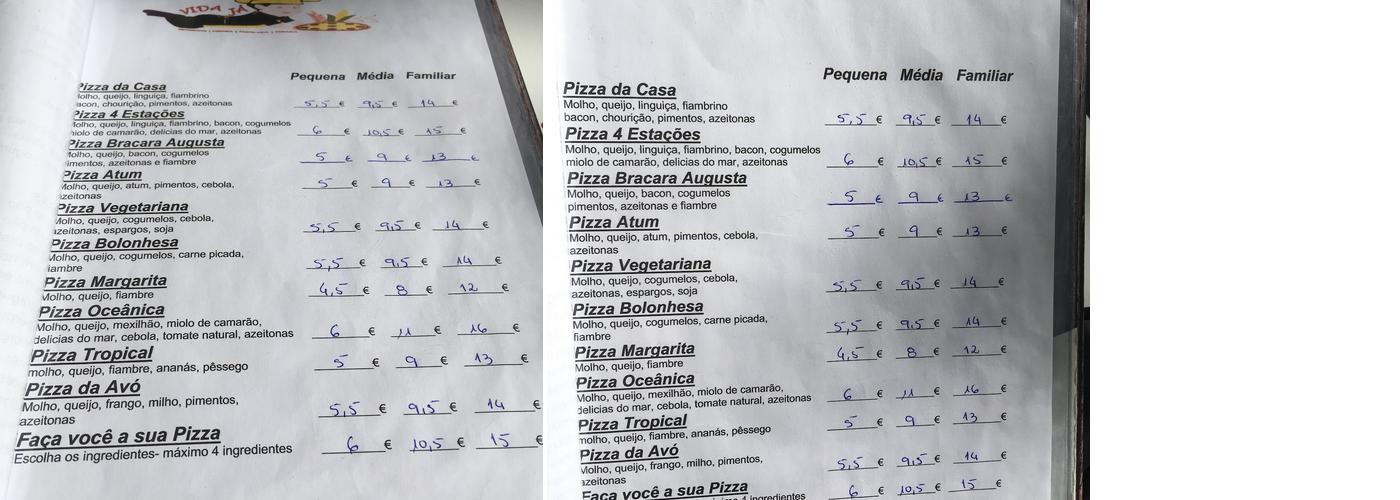 VIDA JÁ
Pequena Média Familiar
Pizza da Casa
Molho, queijo, linguiça, fiambrino
bacon, chourição, pimentos, azeitonas 5,5 € 9,5 € 14 €
Pizza 4 Estações
Molho, queijo, linguiça, fiambrino, bacon, cogumelos
miolo de camarão, delicias do mar, azeitonas 6 € 10,5 € 15 €
Pizza Bracara Augusta
Molho, queijo, bacon, cogumelos
pimentos, azeitonas e fiambre 5 € 9 € 13 €
Pizza Atum
Molho, queijo, atum, pimentos, cebola, 5 € 9 € 13 €
azeitonas
Pizza Vegetariana
Molho, queijo, cogumelos, cebola,
azeitonas, espargos, soja 5,5 € 9,5 € 14 €
Pizza Bolonhesa
Molho, queijo, cogumelos, carne picada, 5,5 € 9,5 € 14 €
fiambre
Pizza Margarita
Molho, queijo, fiambre 4,5 € 8 € 12 €
Pizza Oceânica
Molho, queijo, mexilhão, miolo de camarão,
delicias do mar, cebola, tomate natural, azeitonas 6 € 11 € 16 €
Pizza Tropical
molho, queijo, fiambre, ananás, pêssego 5 € 9 € 13 €
Pizza da Avó
Molho, queijo, frango, milho, pimentos, 5,5 € 9,5 € 14 €
azeitonas
Faça você a sua Pizza
Escolha os ingredientes- máximo 4 ingredientes 6 € 10,5 € 15 €
Pequena Média Familiar
Pizza da Casa
Molho, queijo, linguiça, fiambrino
bacon, chourição, pimentos, azeitonas 5,5 € 9,5 € 14 €
Pizza 4 Estações
Molho, queijo, linguiça, fiambrino, bacon, cogumelos
miolo de camarão, delicias do mar, azeitonas 6 € 10,5 € 15 €
Pizza Bracara Augusta
Molho, queijo, bacon, cogumelos
pimentos, azeitonas e fiambre 5 € 9 € 13 €
Pizza Atum
Molho, queijo, atum, pimentos, cebola, 5 € 9 € 13 €
azeitonas
Pizza Vegetariana
Molho, queijo, cogumelos, cebola,
azeitonas, espargos, soja 5,5 € 9,5 € 14 €
Pizza Bolonhesa
Molho, queijo, cogumelos, carne picada, 5,5 € 9,5 € 14 €
fiambre
Pizza Margarita
Molho, queijo, fiambre 4,5 € 8 € 12 €
Pizza Oceânica
Molho, queijo, mexilhão, miolo de camarão,
delicias do mar, cebola, tomate natural, azeitonas 6 € 11 € 16 €
Pizza Tropical
molho, queijo, fiambre, ananás, pêssego 5 € 9 € 13 €
Pizza da Avó
Molho, queijo, frango, milho, pimentos, 5,5 € 9,5 € 14 €
azeitonas
Faça você a sua Pizza
4 ingredientes 6 € 10,5 € 15 €